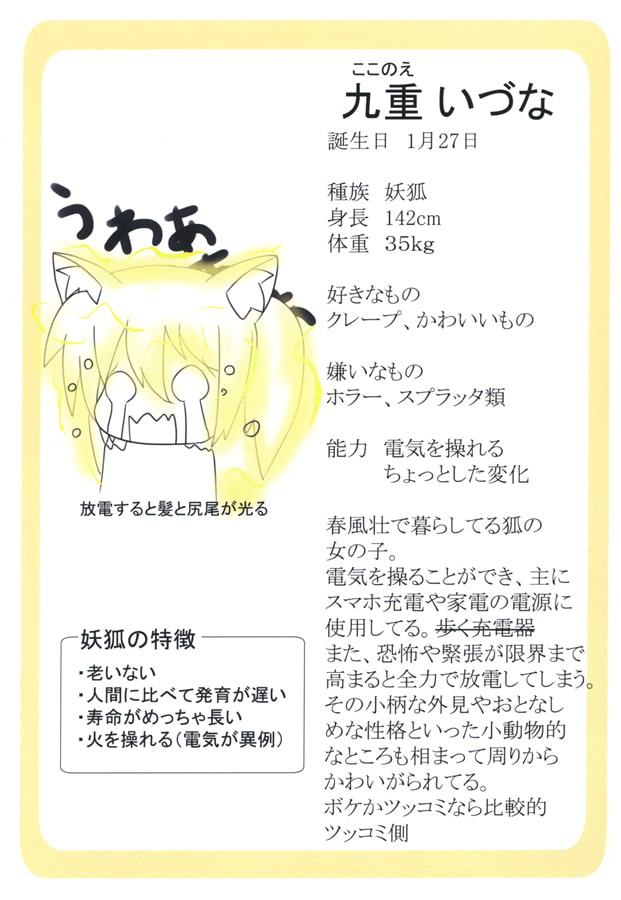 ここのえ
九重 いづな
誕生日 1月27日
種族 妖狐
身長 142cm
体重 35kg
好きなもの
クレープ、かわいいもの
嫌いなもの
ホラー、スプラッタ類
能力 電気を操れる
ちょっとした変化
春風荘で暮らしてる狐の
女の子。
電気を操ることができ、主に
スマホ充電や家電の電源に
使用してる。歩く充電器
また、恐怖や緊張が限界まで
高まると全力で放電してしまう。
その小柄な外見やおとなし
めな性格といった小動物的
なところも相まって周りから
かわいがられてる。
ボケかツッコミなら比較的
ツッコミ側
うわあ
放電すると髪と尻尾が光る
妖狐の特徴
・老いない
・人間に比べて発育が遅い
・寿命がめっちゃ長い
・火を操れる(電気が異例)